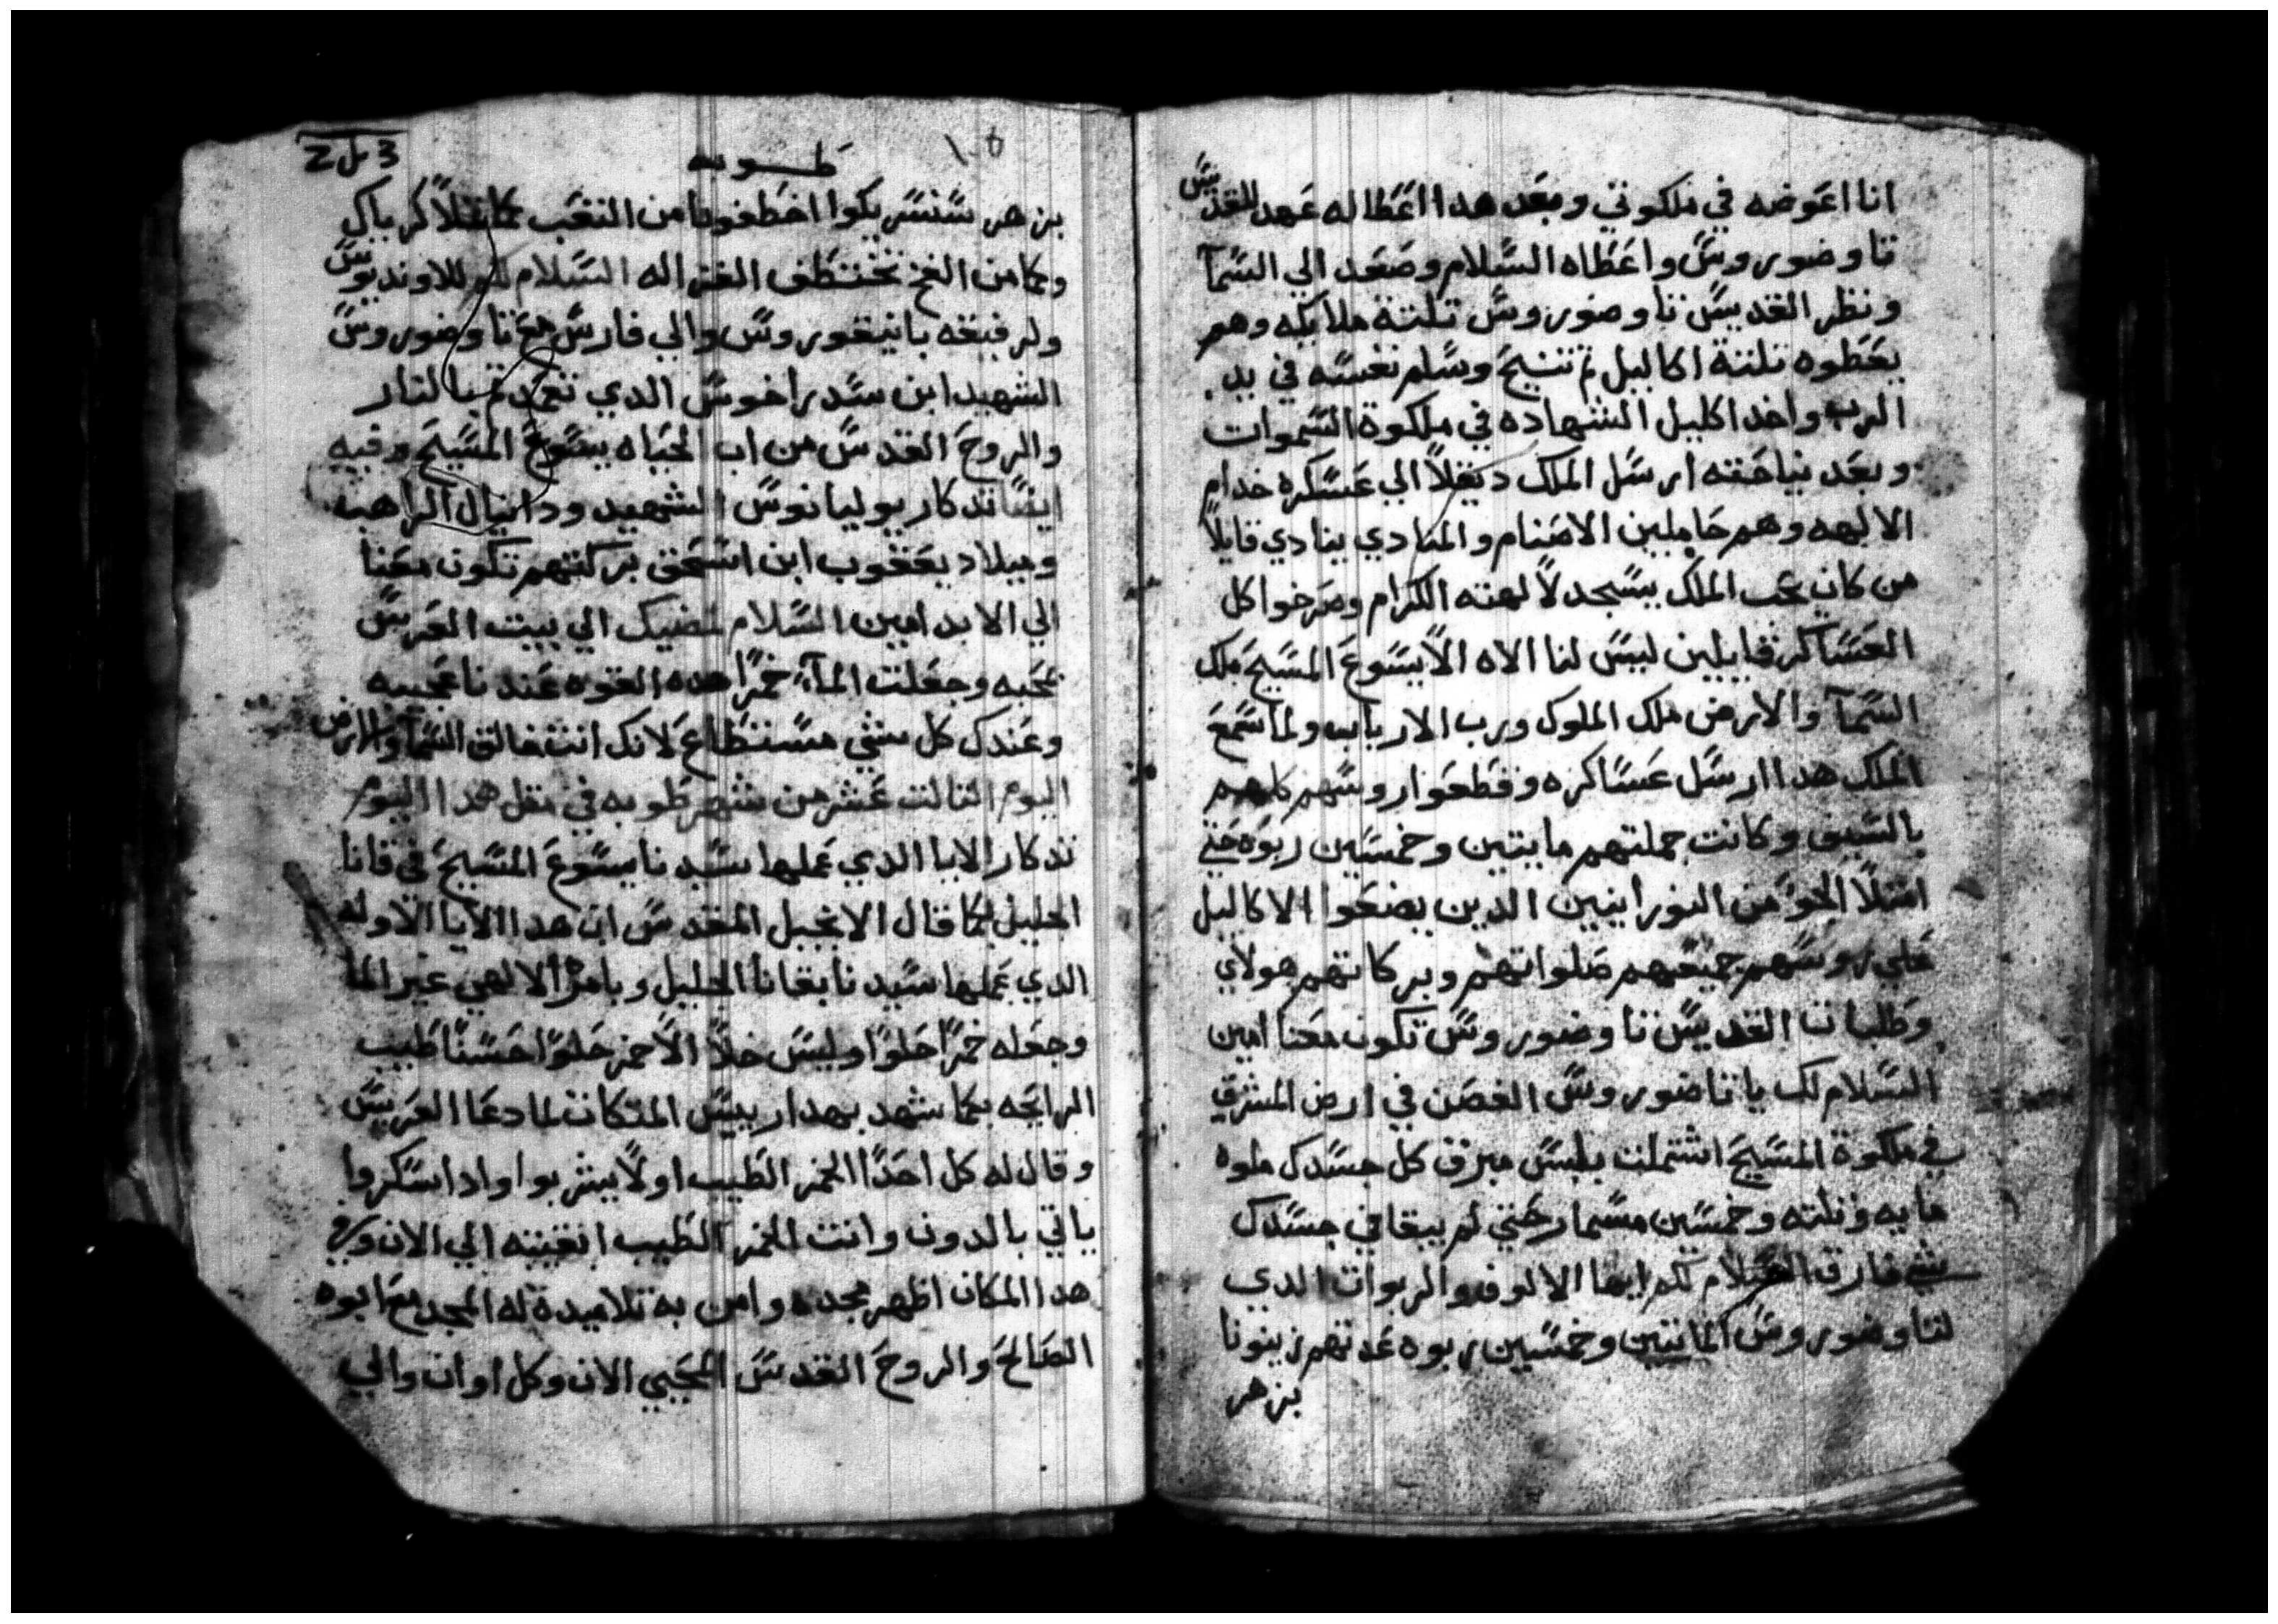 انا اعوضه في ملكوتي وبعد هدا اعطا له عهد للقديس
تاوضوروس واعطاه السلام وصعد الي السمآ
ونظر القديس تاوضوروس تلتة ملايكه وهم
يعطوه تلتة اكاليل تم تنيح وسلم نفسه في يد
الرب واخد اكليل الشهاده في ملكوة السموات
وبعد نياحته ارسل الملك ديقلا الي عسكره خدام
الالهه وهم حاملين الاصنام والمنادي ينادي قايلاً
من كان يحب الملك يسجد لالهته الكرام وصرخوا كل
العساكر قايلين ليس لنا الاه الا يسوع المسيح ملك
السمآ والارض ملك الملوك ورب الارباب ولما سمع
الملك هدا ارسل عساكره وقطعوا روسهم كلهم
بالسيف وكانت جملتهم مايتين وخمسين ربوه حتي
امتلا الجو من النورانيين الدين يضعوا الاكاليل
علي روسهم جميعهم صلواتهم وبركاتهم هولاي
وطلبات القديس تاوضوروس تكون معنا امين
السلام لك يا تاضوروس الغصن في ارض المشرق
في ملكوة المسيح اشتملت بلبس مبرق كل جسدك ملوه
مايه وتلته وخمسين مسمار حتي لم يبقا في جسدك
شي فارق السلام لكم ايها الالوف والربوات الدي
لتاوضوروس المايتين وخمسين ربوه عدتهم زيتونا
بزهر
3 ل 2
طوبه
١٠٥
بزهر اخطفونا من التعب
وكما من الفخ تختطف الغزاله السلام للاونديوس
ولرفيقه بانيقوروس والي فارس مع تاوضوروس
الشهيد ابن سدراخوس الدي تعمد بالنار
والروح القدس من اب الحياه يسوع المسيح وفيه
ايضا تدكار يوليانوس الشهيد ودانيال الراهب
وميلاد يعقوب ابن اسحق بركتهم تكون معنا
الي الابد امين السلام لمضيك الي بيت العرس
بمحبه وجعلت المآء خمرًا هده القوه عندنا عجيبه
وعندك كل شي مستطاع لانك انت خالق السمآ والارض
اليوم التالت عشر من شهر طوبه في متل هدا اليوم
تدكار الايا الدي عملها سيدنا يسوع المسيح في قانا
الجليل كما قال الانجيل المقدس ان هدا الايا الاوله
الدي عملها سيدنا بقانا الجليل وبامرا الالهي غير الما
وجعله خمرًا حلوًا وليس خلاً الا خمر حلوًا حسنًا طيب
الرايحه كما شهد بهدا رييس المتكات لما دعا العريس
وقال له كل احدًا الخمر الطيب اولاً يشربوا وادا سكروا
ياتي بالدون وانت الخمر الطيب ابقيته الي الان وفي
هدا المكان اظهر مجده وامن به تلاميدة له المجد مع ابوه
الصالح والروح القدس المحيي الان وكل اوان والي